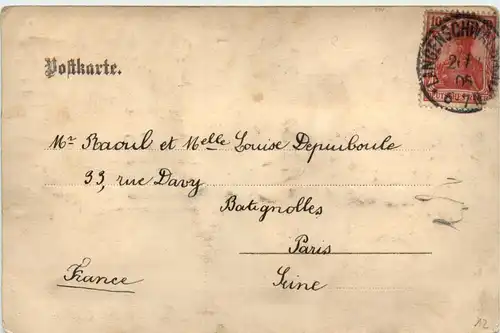 Postkarte.
10
LANGENSCHWALBACH
Mr Raoul et Melle Louise Depuiboule
33, rue Davy
Batignolles
Paris
France
Seine